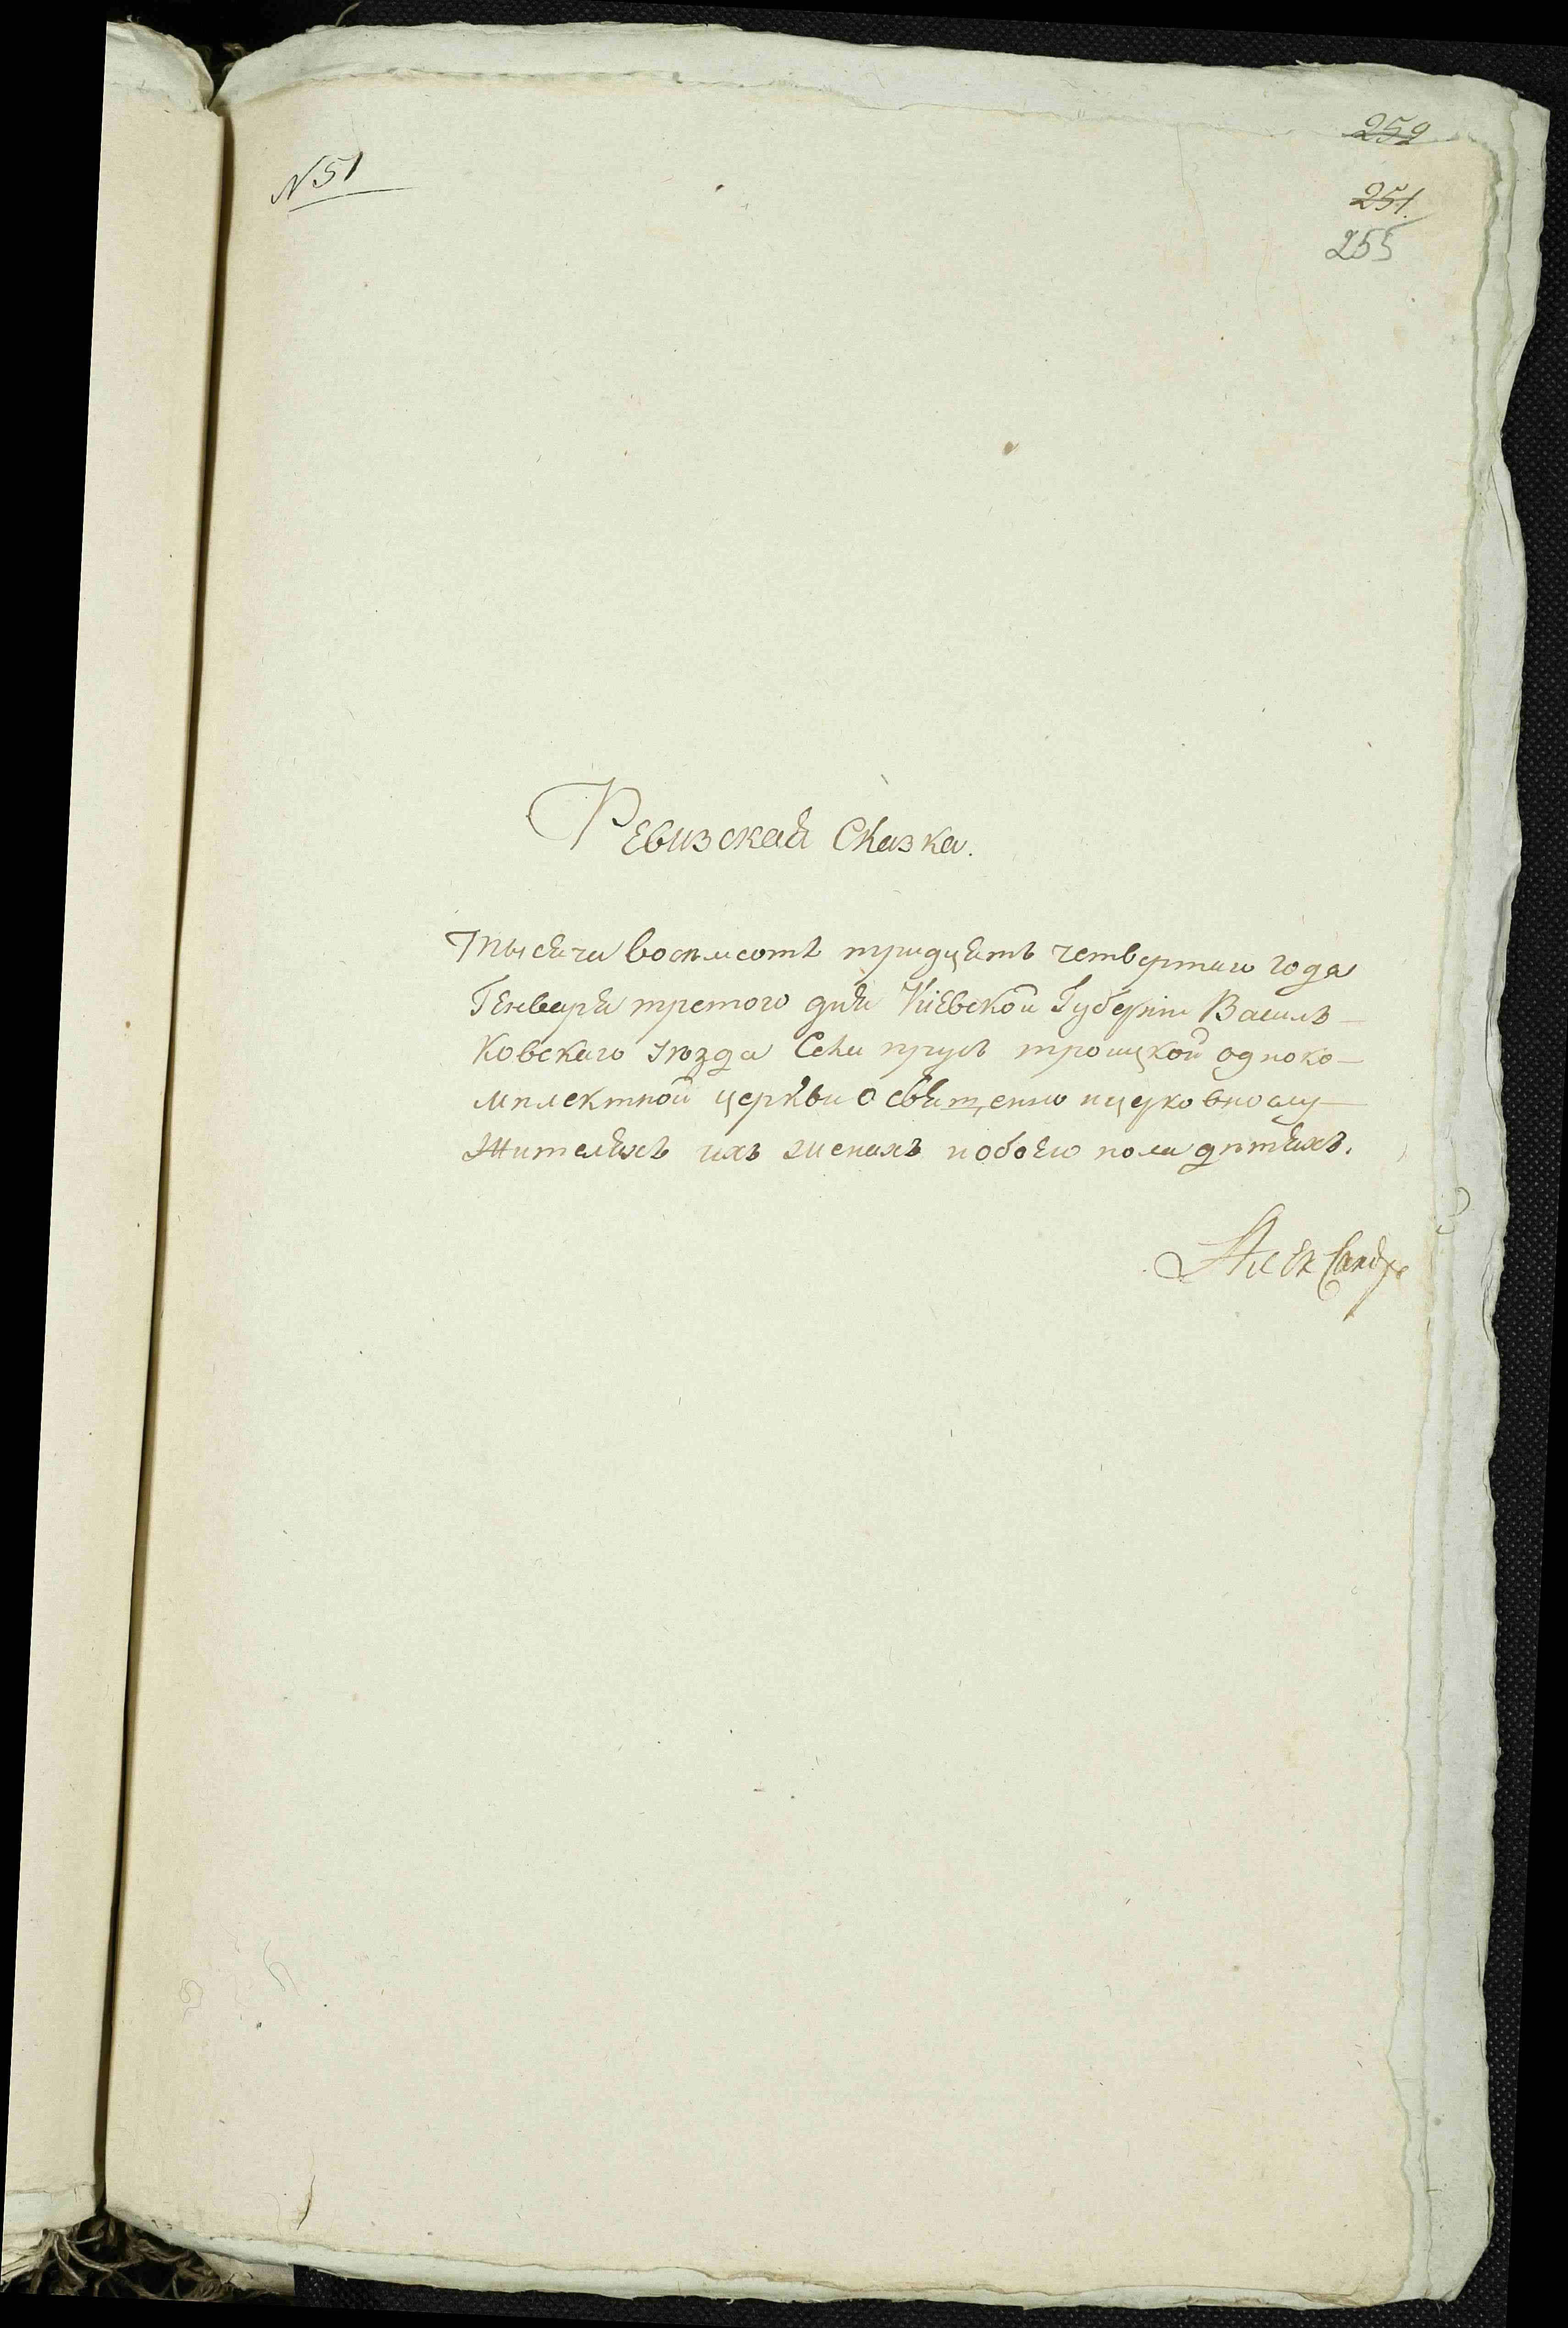 N 51
259
251.
255
Ревизская Сказка.
Тысяча восемсотъ тридцать четвертаго года
Генваря третого дня Кіевской Губерніи Василь-
ковскаго уѣзда Села Прусъ троицкой одноко-
мплектной церкви О священно ицерковнослу-
жителяхъ ихъ женахъ иобоего пола дѣтяхъ.
Александр